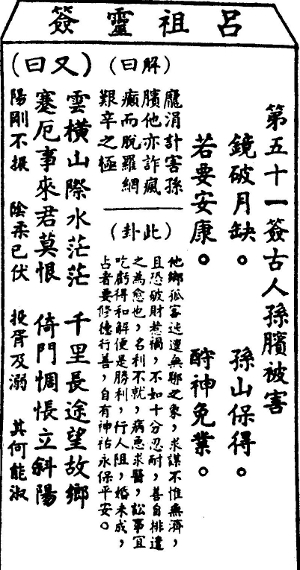 呂祖靈簽
第五十一簽古人孫臏被害
鏡破月缺。 孫山保得。
若要安康。 酧神免業。
(解曰)
龐涓計害孫
臏他亦詐瘋
癲而脫羅網
艱辛之極
(此卦)
他鄉孤客迍邅無聊之象，求謀不惟無濟，
且恐破財惹禍，不如十分忍耐，善自排遣
之為愈也，名利不就，病急求醫，訟事宜
吃虧得和解便是勝利，行人阻，婚未成，
占者要修德行善，自有神祐永保平安。
(又曰)
雲橫山際水茫茫 千里長途望故鄉
蹇厄事來君莫恨 倚門惆悵立斜陽
陽剛不振 陰柔已伏 投胥及溺 其何能淑